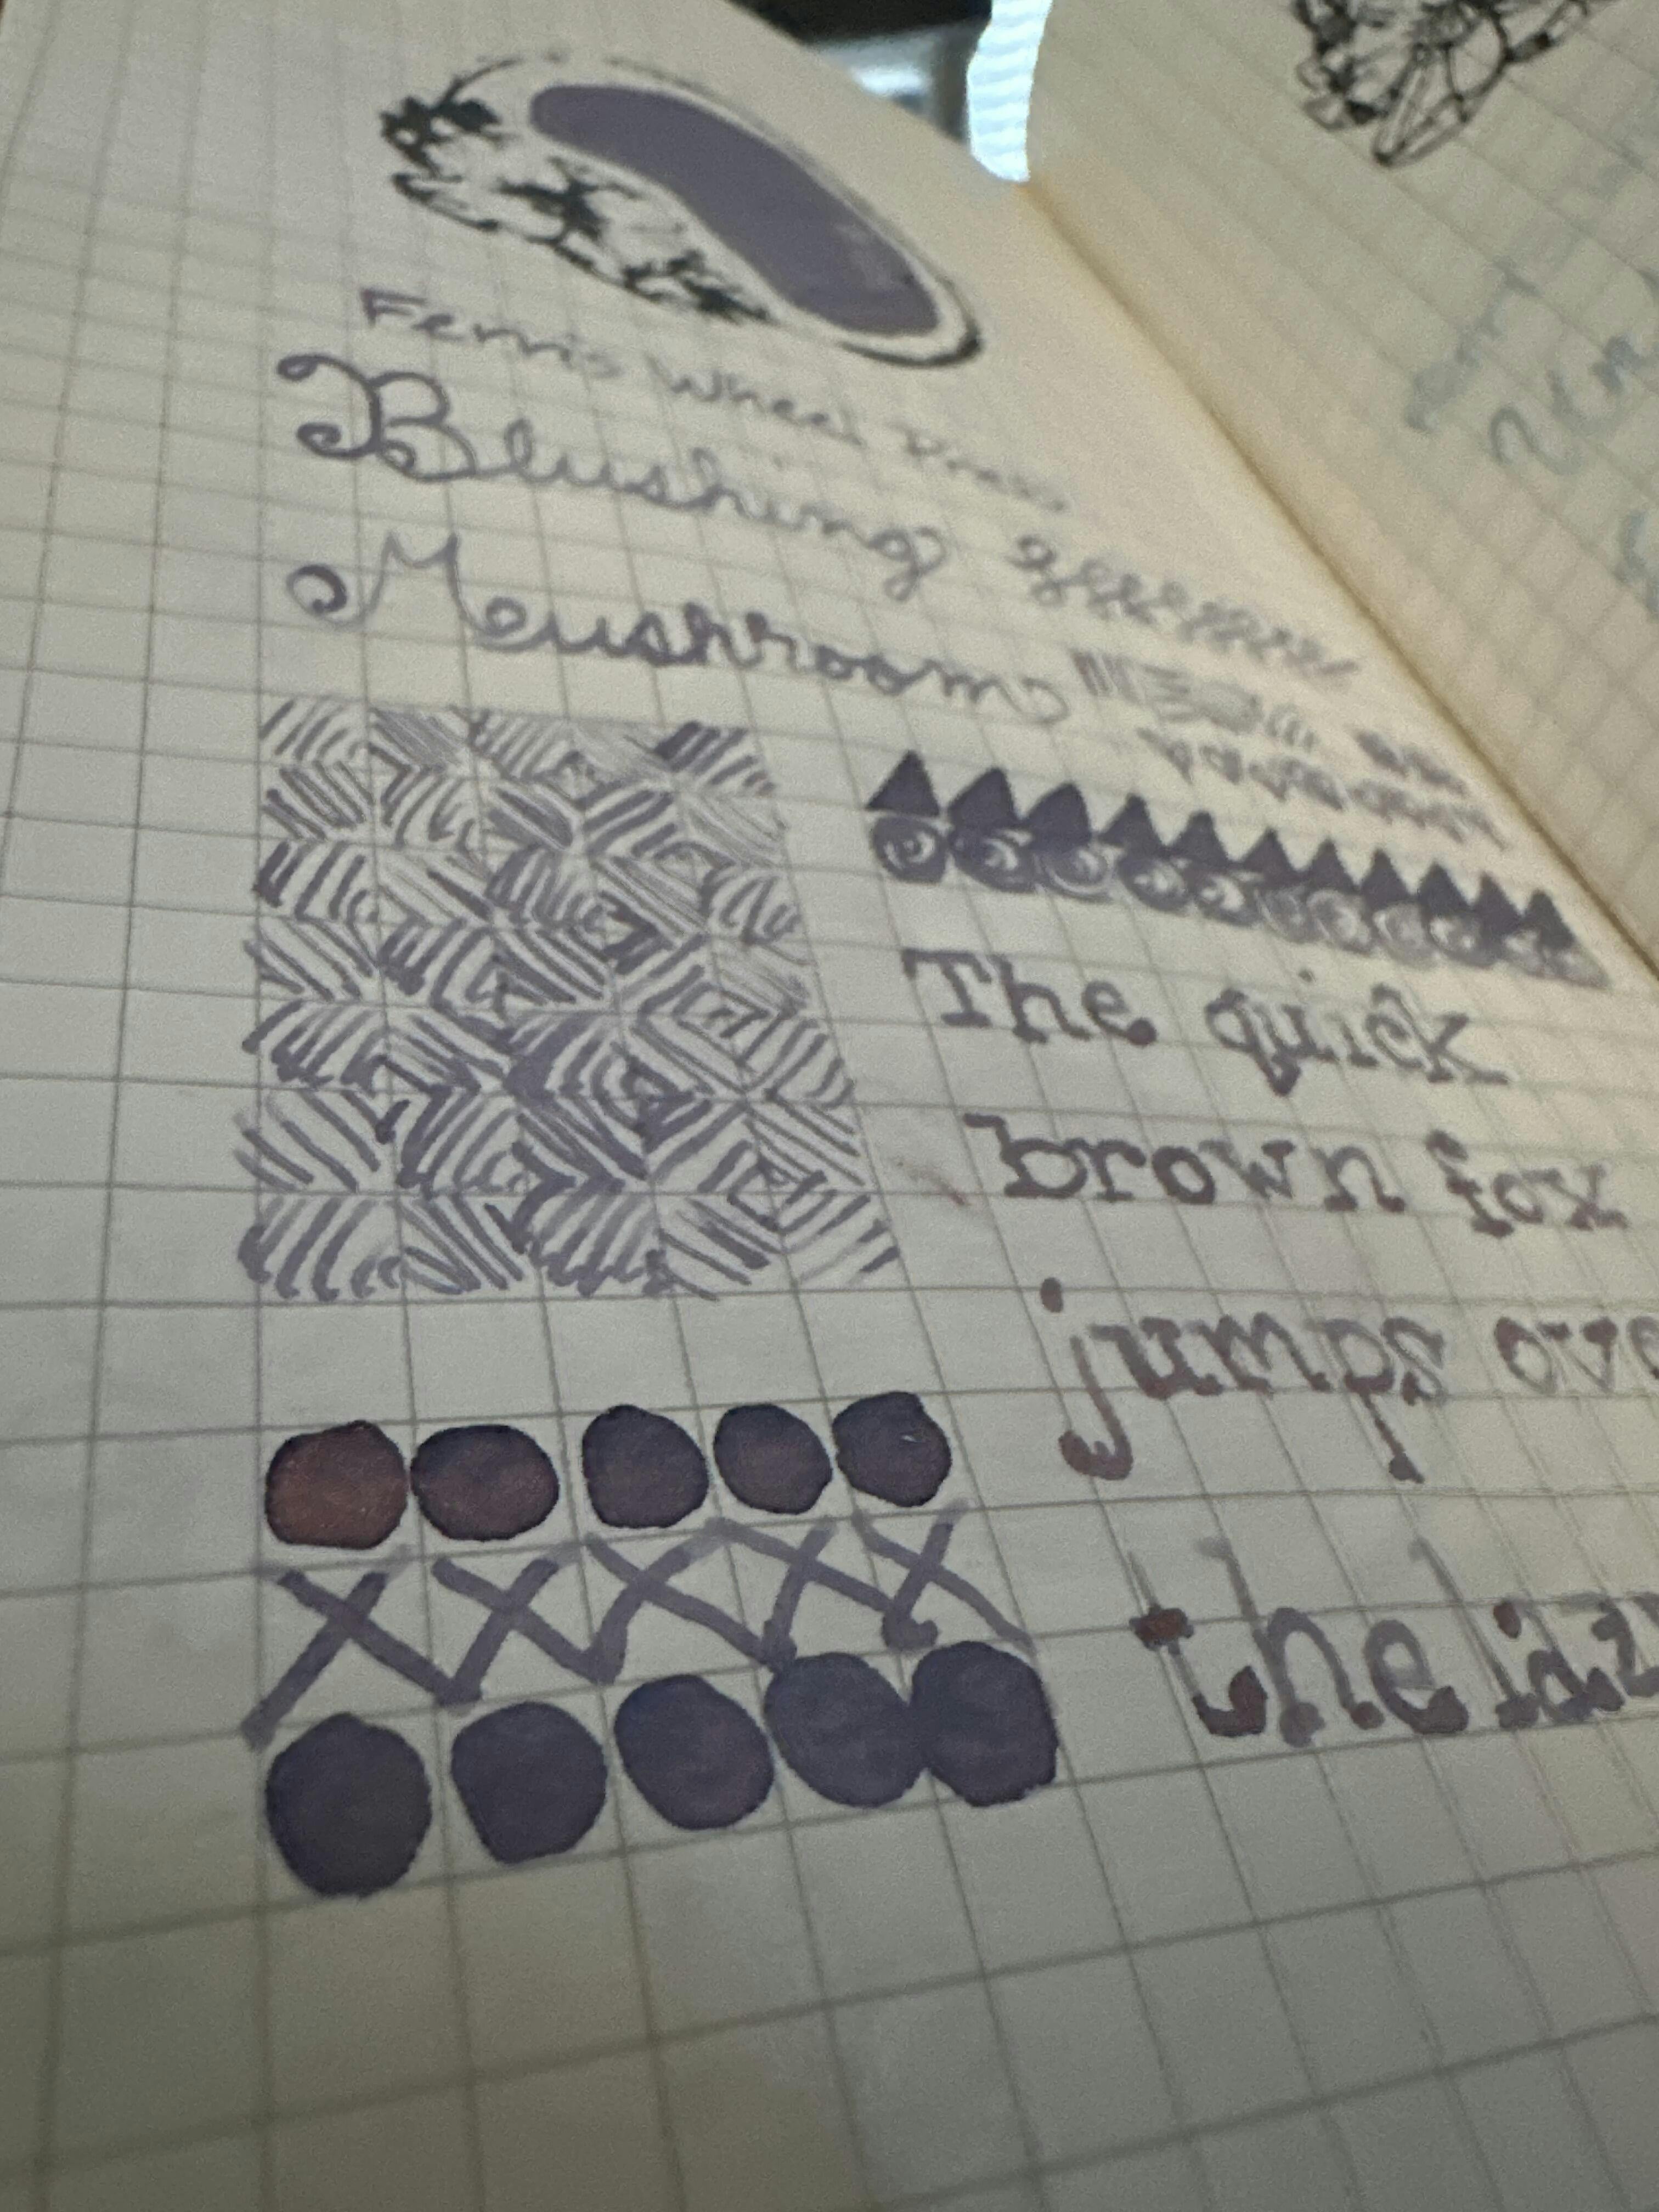 Ferris Wheel Press
Blushing
Mushroom
The quick
brown fox
jumps ove
the lazy